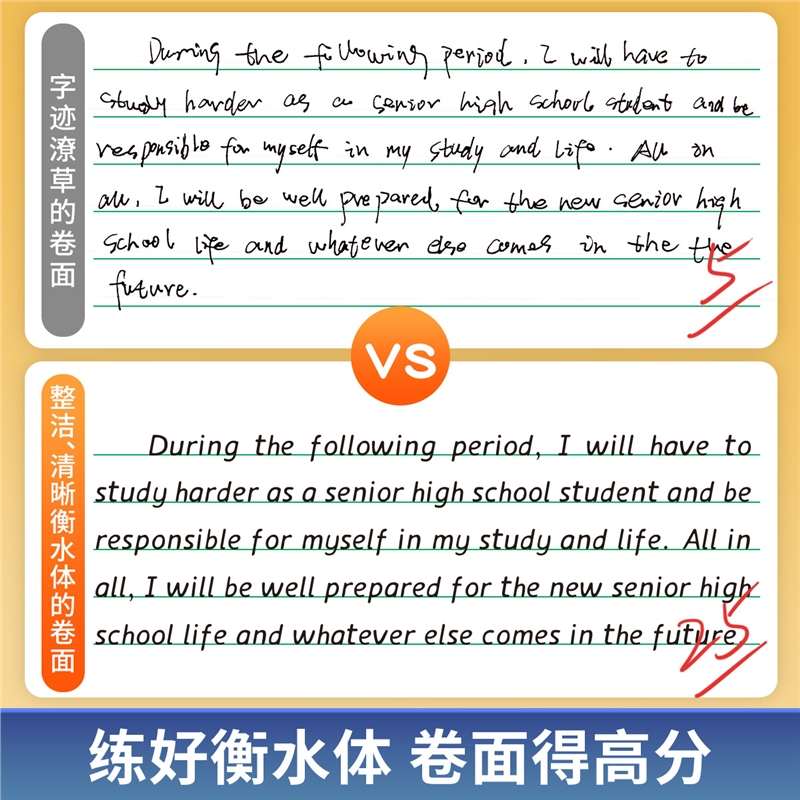 字迹潦草的卷面
During the following period, I will have to
study harder as a senior high school student and be
responsible for myself in my study and life. All in
all, I will be well prepared for the new senior high
school life and whatever else comes in the the
future.
5
VS
整洁、清晰衡水体的卷面
During the following period, I will have to
study harder as a senior high school student and be
responsible for myself in my study and life. All in
all, I will be well prepared for the new senior high
school life and whatever else comes in the future
25
练好衡水体 卷面得高分